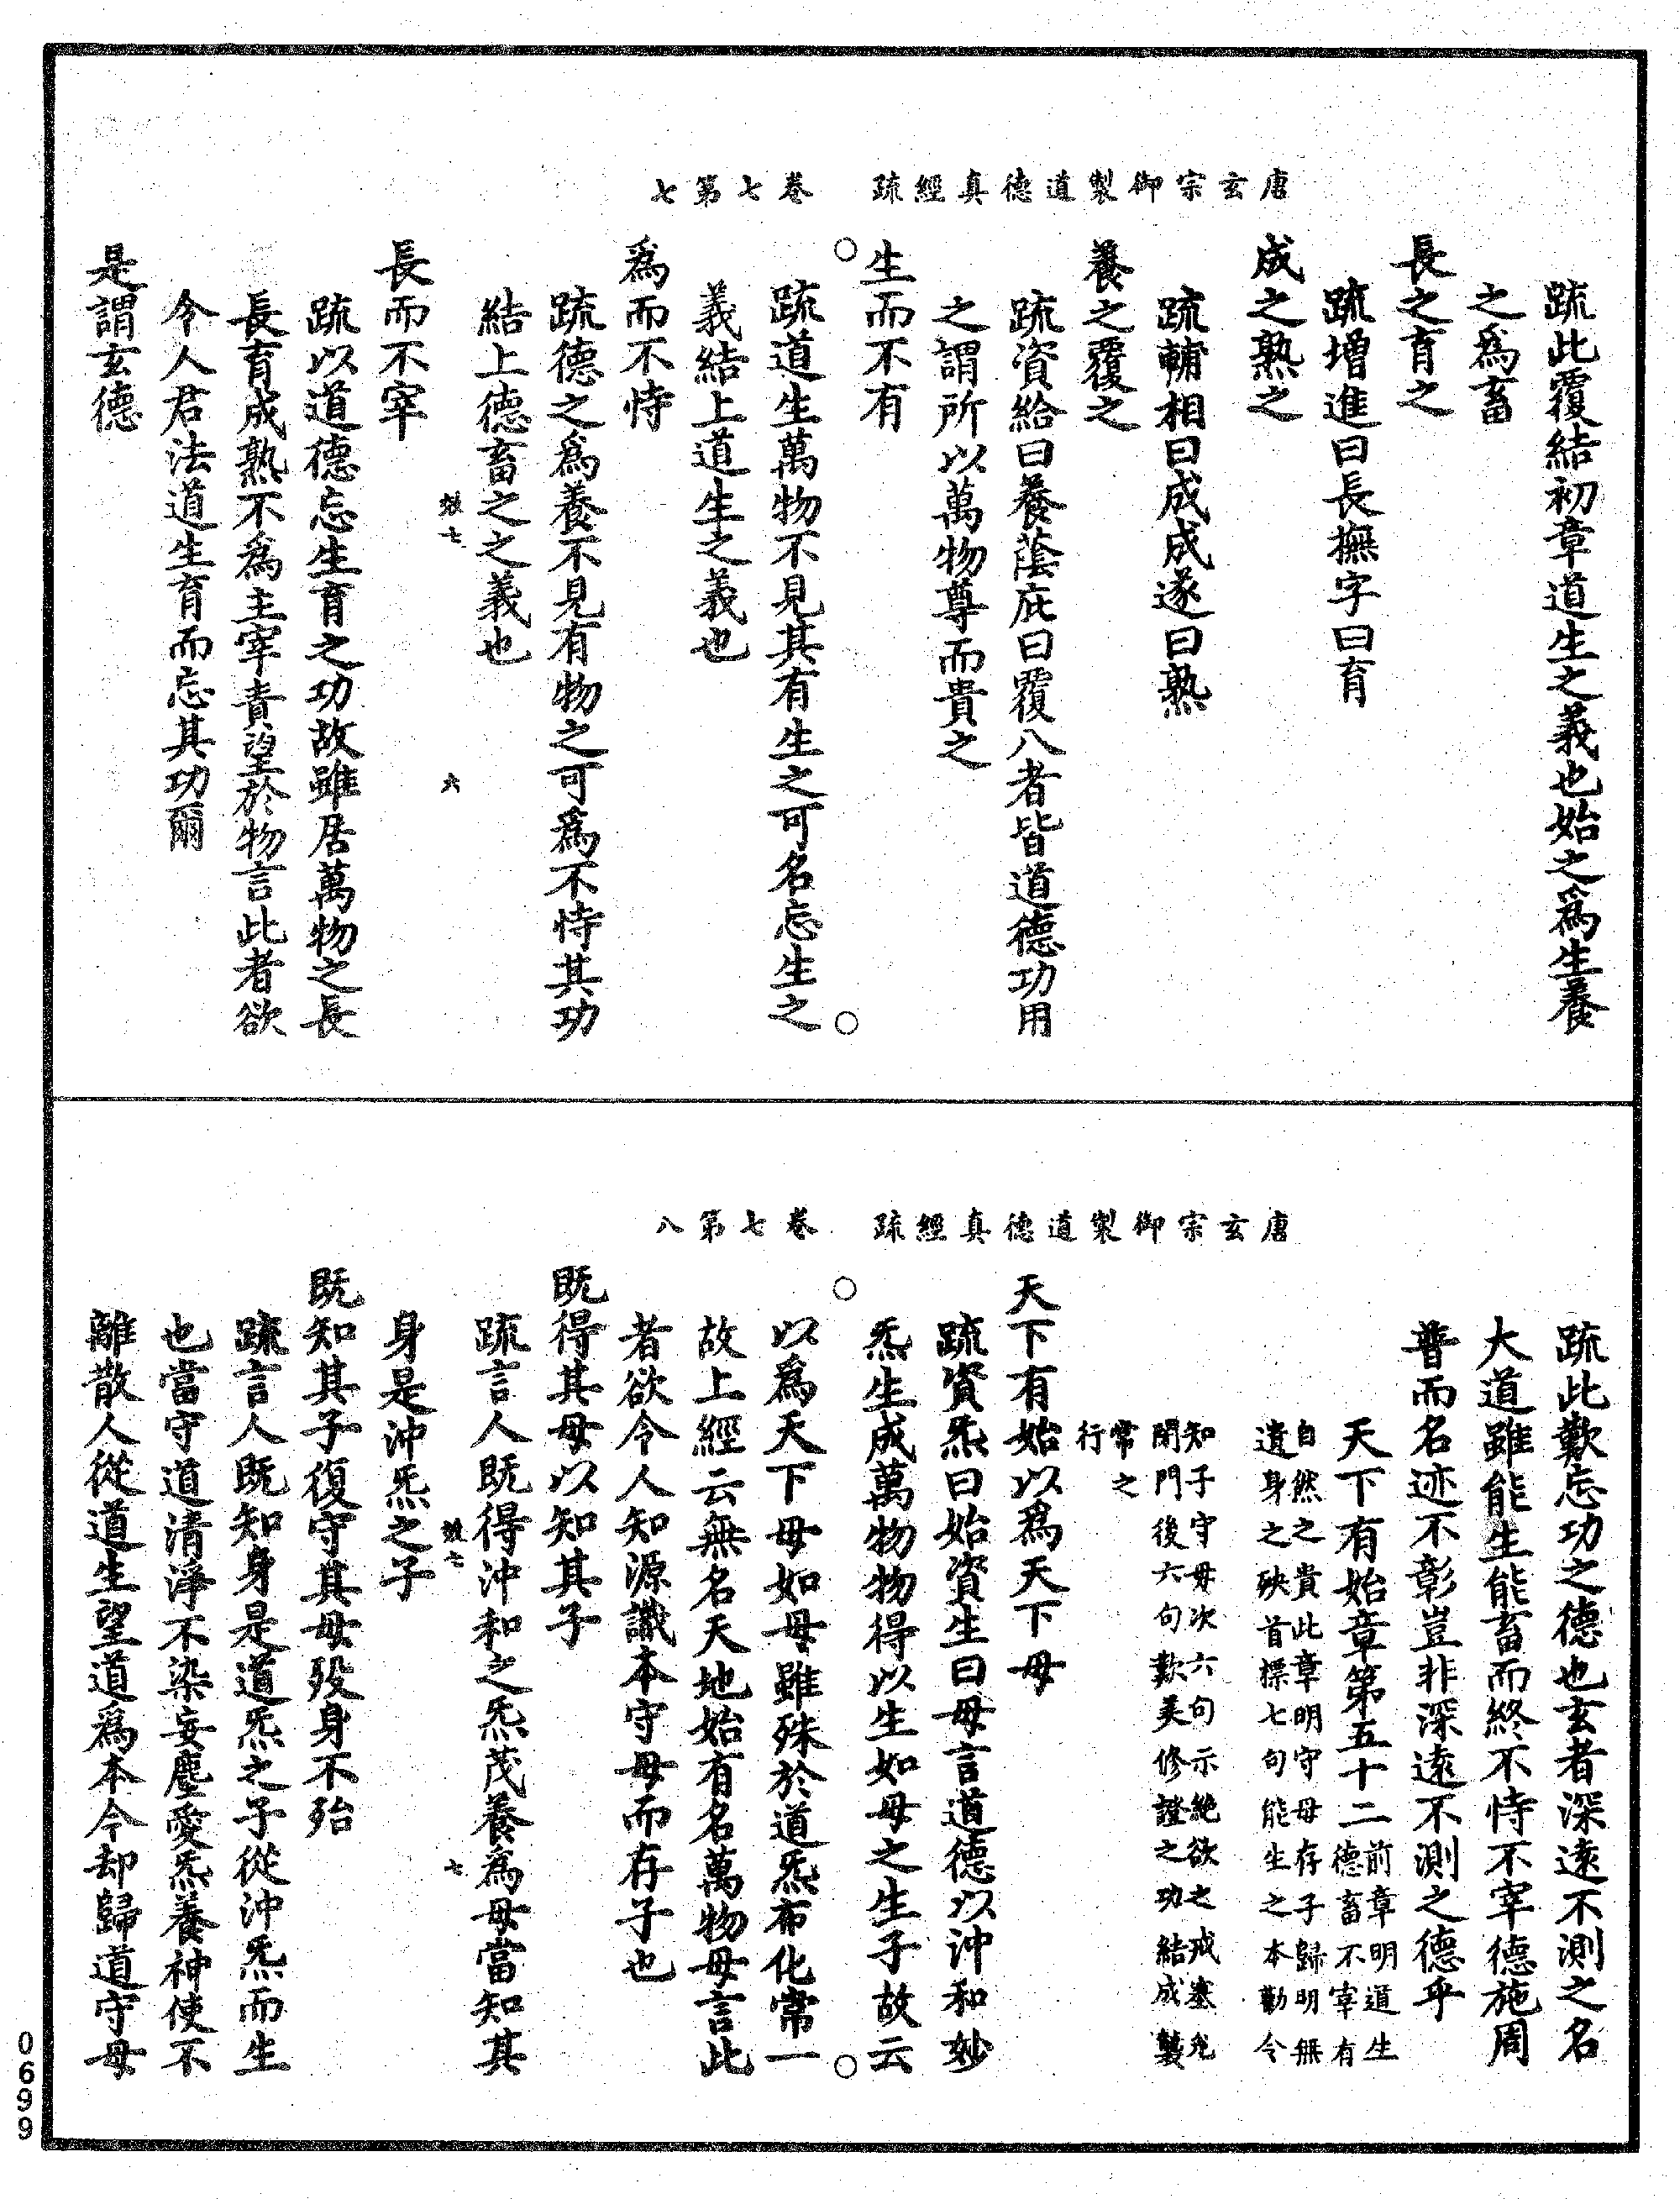 唐玄宗御製道德真經疏　卷七第七
疏此覆結初章道生之義也始之爲生養
之爲畜
長之育之
疏增進曰長撫字曰育
成之熟之
疏輔相曰成成遂曰熟
養之覆之
疏資給曰養蔭庇曰覆八者皆道德功用
之謂所以萬物尊而貴之
生而不有
○　○
疏道生萬物不見其有生之可名忘生之
義結上道生之義也
爲而不恃
疏德之爲養不見有物之可爲不恃其功
結上德畜之之義也
七　六
長而不宰
疏以道德忘生育之功故雖居萬物之長
長育成熟不爲主宰責望於物言此者欲
令人君法道生育而忘其功爾
是謂玄德
唐玄宗御製道德真經疏　卷七第八
疏此歎忘功之德也玄者深遠不測之名
大道雖能生能畜而終不恃不宰德施周
普而名迹不彰豈非深遠不測之德乎
天下有始章第五十二
前章明道生
德畜不宰有
自然之貴此章明守母存子歸明無
遺身之殃首標七句能生之本勸令
知子守母次六句示絶欲之戒塞兌
閉門後六句歎美修證之功結成襲
常之
行
天下有始以爲天下母
疏資炁曰始資生曰母言道德以沖和妙
炁生成萬物物得以生如母之生子故云
○　○
以爲天下母如母雖殊於道炁布化常一
故上經云無名天地始有名萬物母言此
者欲令人知源識本守母而存子也
既得其母以知其子
疏言人既得沖和之炁茂養爲母當知其
七　七
身是沖炁之子
既知其子復守其母歿身不殆
疏言人既知身是道炁之子從沖炁而生
也當守道清淨不染妄塵愛炁養神使不
離散人從道生望道爲本今却歸道守母
0699